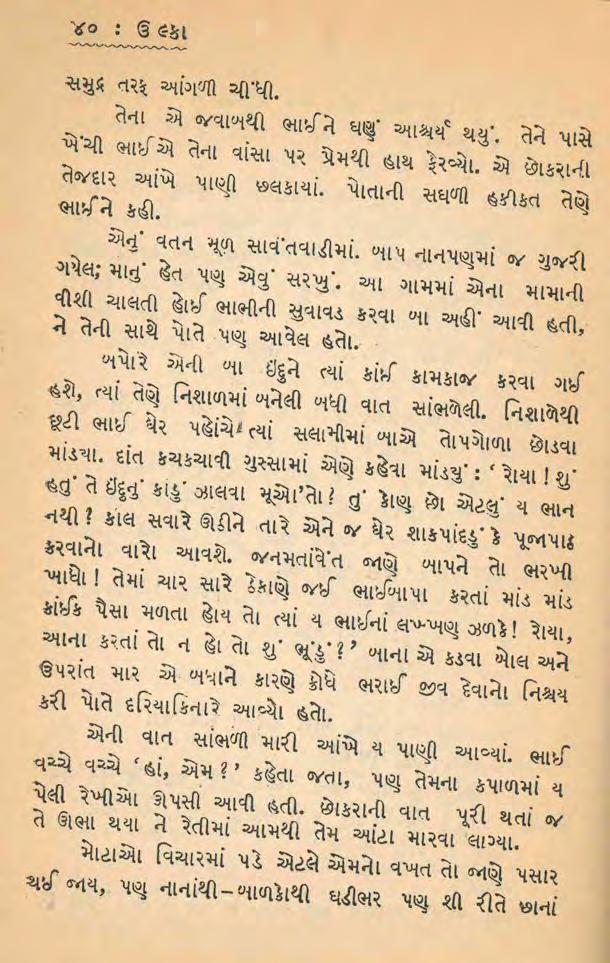 ૪૦ : ઉલ્કા
સમુદ્ર તરફ આંગળી ચીંધી.
તેના એ જવાબથી ભાઈને ઘણું આશ્ચર્ય થયું. તેને પાસે
ખેંચી ભાઈએ તેના વાંસા પર પ્રેમથી હાથ ફેરવ્યો. એ છોકરાની
તેજદાર આંખે પાણી છલકાયાં. પોતાની સઘળી હકીકત તેણે
ભાઈને કહી.
એનું વતન મૂળ સાવંતવાડીમાં. બાપ નાનપણમાં જ ગુજરી
ગયેલ; માનું હેત પણ એવું સરખું. આ ગામમાં એના મામાની
વીશી ચાલતી હોઈ ભાભીની સુવાવડ કરવા બા અહીં આવી હતી,
ને તેની સાથે પોતે પણ આવેલ હતો.
બપોરે એની બા ઇંદુને ત્યાં કાંઈ કામકાજ કરવા ગઈ
હશે, ત્યાં તેણે નિશાળમાં બનેલી બધી વાત સાંભળેલી. નિશાળેથી
છૂટી ભાઈ ઘેર પહોંચે ત્યાં સલામીમાં બાએ તોપગોળા છોડવા
માંડ્યા. દાંત કચકચાવી ગુસ્સામાં એણે કહેવા માંડ્યું : ‘ રોયા ! શું
હતું તે ઇંદુનું કાંડું ઝાલવા મૂઓ'તો ? તું કોણ છો એટલું ય ભાન
નથી ? કાલ સવારે ઊઠીને તારે એને જ ઘેર શાકપાંદડું કે પૂજાપાઠ
કરવાનો વારો આવશે. જનમતાંવેંત જાણે બાપને તો ભરખી
ખાધો ! તેમાં ચાર સારે ઠેકાણે જઈ ભાઈબાપા કરતાં માંડ માંડ
કાંઈક પૈસા મળતા હોય તો ત્યાં ય ભાઈનાં લખ્ખણ ઝળકે ! રોયા,
આના કરતાં તો ન હો તો શું ભૂંડું ?’ બાના એ કડવા બોલ અને
ઉપરાંત માર એ બધાને કારણે ક્રોધે ભરાઈ જીવ દેવાનો નિશ્ચય
કરી પોતે દરિયાકિનારે આવ્યો હતો.
એની વાત સાંભળી મારી આંખે ય પાણી આવ્યાં. ભાઈ
વચ્ચે વચ્ચે ‘ હાં, એમ ? ’ કહેતા જતા, પણ તેમના કપાળમાં ય
પેલી રેખીઓ ઊપસી આવી હતી. છોકરાની વાત પૂરી થતાં જ
તે ઊભા થયા ને રેતીમાં આમથી તેમ આંટા મારવા લાગ્યા.
મોટાઓ વિચારમાં પડે એટલે એમનો વખત તો જાણે પસાર
થઈ જાય, પણ નાનાંથી – બાળકોથી ઘડીભર પણ શી રીતે છાનાં